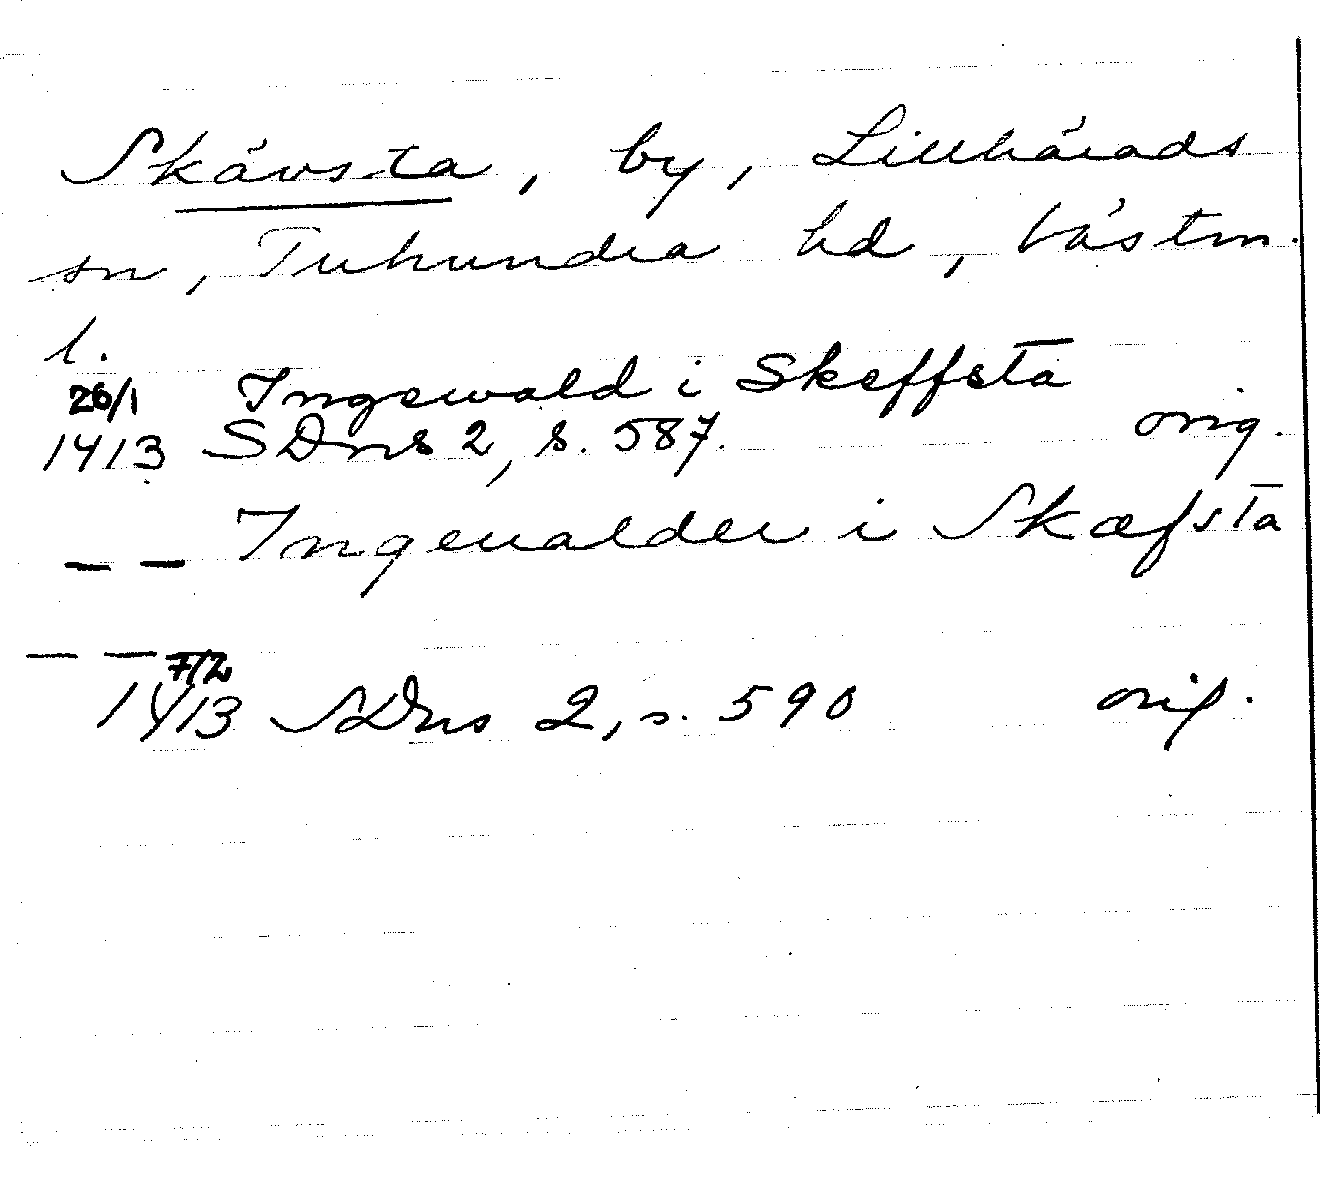 Skävsta, by, Lillhärads
sn, Tuhundra hd, Västm.
l.
26/1 Ingewald i Skeffsta
1413 SDns 2, s. 587. orig.
— — Ingeualder i Skæfsta
— — 7/2
1413 SDns 2, s. 590 orig.